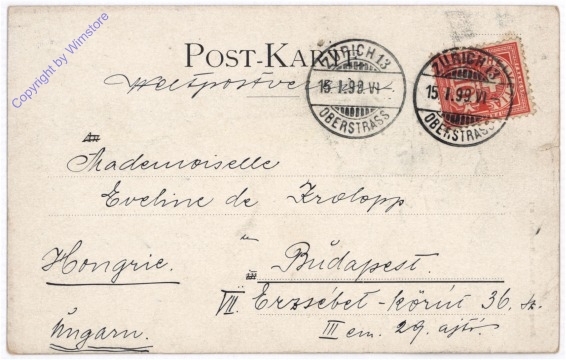 Copyright by Wimstore
POST-KARTE
Weltpostverein
ZÜRICH 13
15.I.99.VI
OBERSTRASS
ZÜRICH 13
15.I.99.VI
OBERSTRASS
An
Mademoiselle
Eveline de Krolopp
in
Hongrie.
Budapest.
VII. Erzsébet-körút 36. sz.
Ungarn.
III em. 29. ajtó.